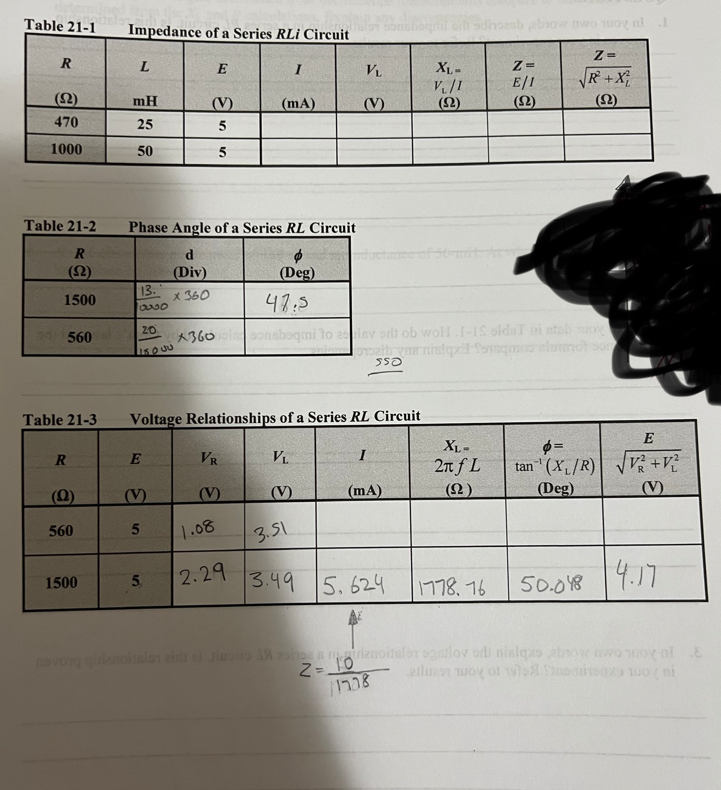 Table 21-1 Impedance of a Series RLi Circuit
R L E I V_L X_L = V_L/I Z = E/I Z = √R² + X_L²
(Ω) mH (V) (mA) (V) (Ω) (Ω) (Ω)
470 25 5
1000 50 5
Table 21-2 Phase Angle of a Series RL Circuit
R d ϕ
(Ω) (Div) (Deg)
1500 13. × 360 47.5
560 20 × 360
550
Table 21-3 Voltage Relationships of a Series RL Circuit
R E V_R V_L I X_L = 2π f L ϕ = tan⁻¹ (X_L/R) E √V_R² + V_L²
(Ω) (V) (V) (V) (mA) (Ω) (Deg) (V)
560 5 1.08 3.51
1500 5 2.29 3.49 5.624 1778.76 50.048 4.17
Z = 10
1778